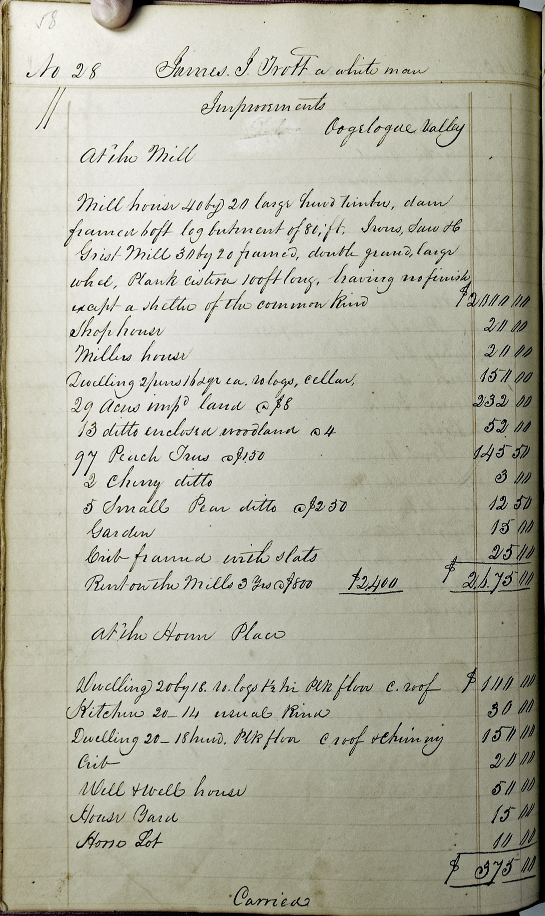 58
No 28 James. J. Trott a white man
Improvements
Oogeloque Valley
At the Mill
Mill house 40 by 20 large hewd timber, dam
framed 6 oft log butment of 80, ft. Irons, Saw &c
Grist Mill 30 by 20 framed, double geard, large
wheel, Plank cistern 100 ft long, having no finish
except a shelter of the common kind $2000 00
Shop house 20 00
Millers house 20 00
Dwelling 2 pens 16 sqr ea. ro logs, cellar, 150 00
29 Acres impd land @ $8 232 00
13 ditto enclosed woodland @ 4 52 00
97 Peach Trees @ $1.50 145 50
2 Cherry ditto 3 00
5 Small Pear ditto @ $2 50 12 50
Garden 15 00
Crib framed with slats 25 00
Rent on the Mills 3 Yrs @ $800 $2400 $2675 00
At the Home Place
Dwelling 20 by 18. ro. logs 1½ hi Plk floor c. roof $100 00
Kitchen 20 - 14 usual kind 30 00
Dwelling 20 - 18 hewd. Plk floor c roof & chimny 150 00
Crib 20 00
Well & well house 50 00
House Yard 15 00
Horse Lot 10 00
$375 00
Carried